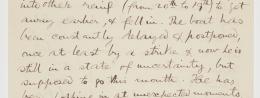 into other being (from 20th to 19th) to get
away earlier, & fell in. The boat has
been constantly delayed & postponed,
once at least by a strike & now he is
still in a state of uncertainty, but
supposed to go this month. He has
been in at unexpected moments